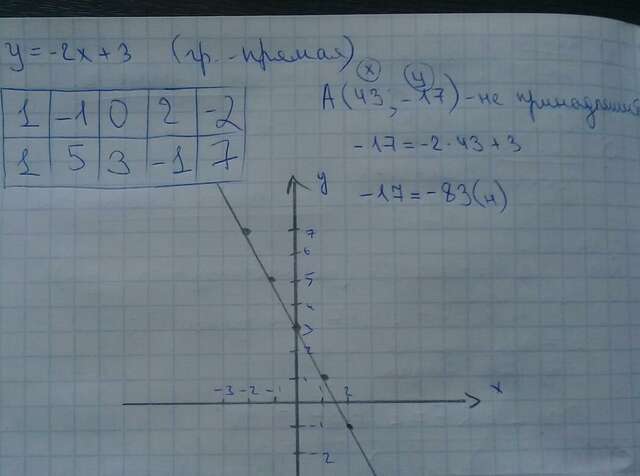 y = -2x + 3 (гр. - прямая)
1 -1 0 2 -2
1 5 3 -1 7
x y
A (43; -17) - не
-17 = -2·43 + 3
-17 = -83 (н)
y
7
6
5
4
3
2
1
-3 -2 -1 1 2
x
-1
-2